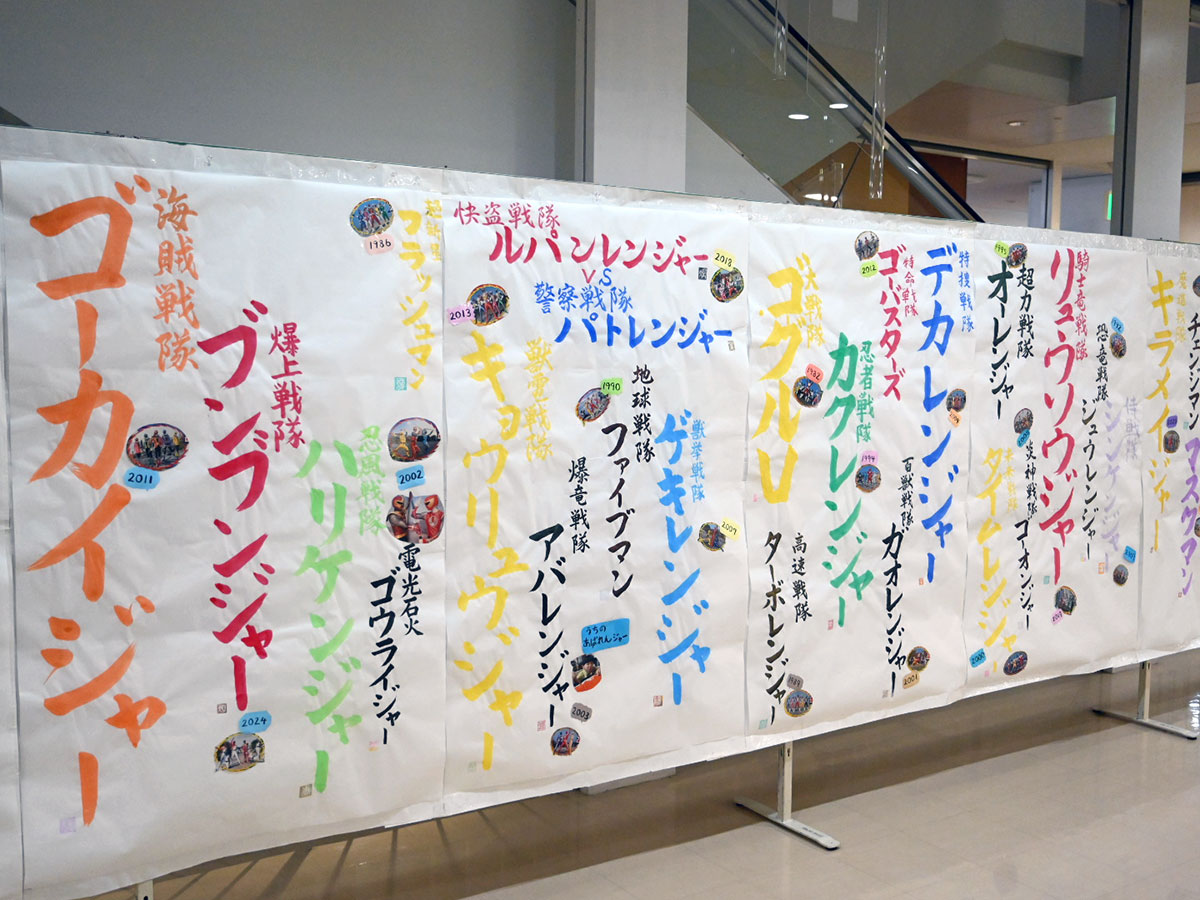 海賊戦隊
ゴーカイジャー
2011
爆上戦隊
ブンブンジャー
2024
超新星
フラッシュマン
1986
忍風戦隊
ハリケンジャー
2002
電光石火
ゴウライジャー
快盗戦隊
ルパンレンジャー
VS
警察戦隊
パトレンジャー
2018
獣電戦隊
キョウリュウジャー
2013
地球戦隊
ファイブマン
1990
爆竜戦隊
アバレンジャー
2003
うちの
あばれんジャー
獣拳戦隊
ゲキレンジャー
2007
大戦隊
ゴーグルV
1982
高速戦隊
ターボレンジャー
1989
特命戦隊
ゴーバスターズ
2012
忍者戦隊
カクレンジャー
1994
特捜戦隊
デカレンジャー
百獣戦隊
ガオレンジャー
2001
超力戦隊
オーレンジャー
1995
タイムレンジャー
炎神戦隊
ゴーオンジャー
2008
騎士竜戦隊
リュウソウジャー
恐竜戦隊
ジュウレンジャー
侍戦隊
シンケンジャー
魔進戦隊
キラメイジャー
チェンジマン
マスクマン